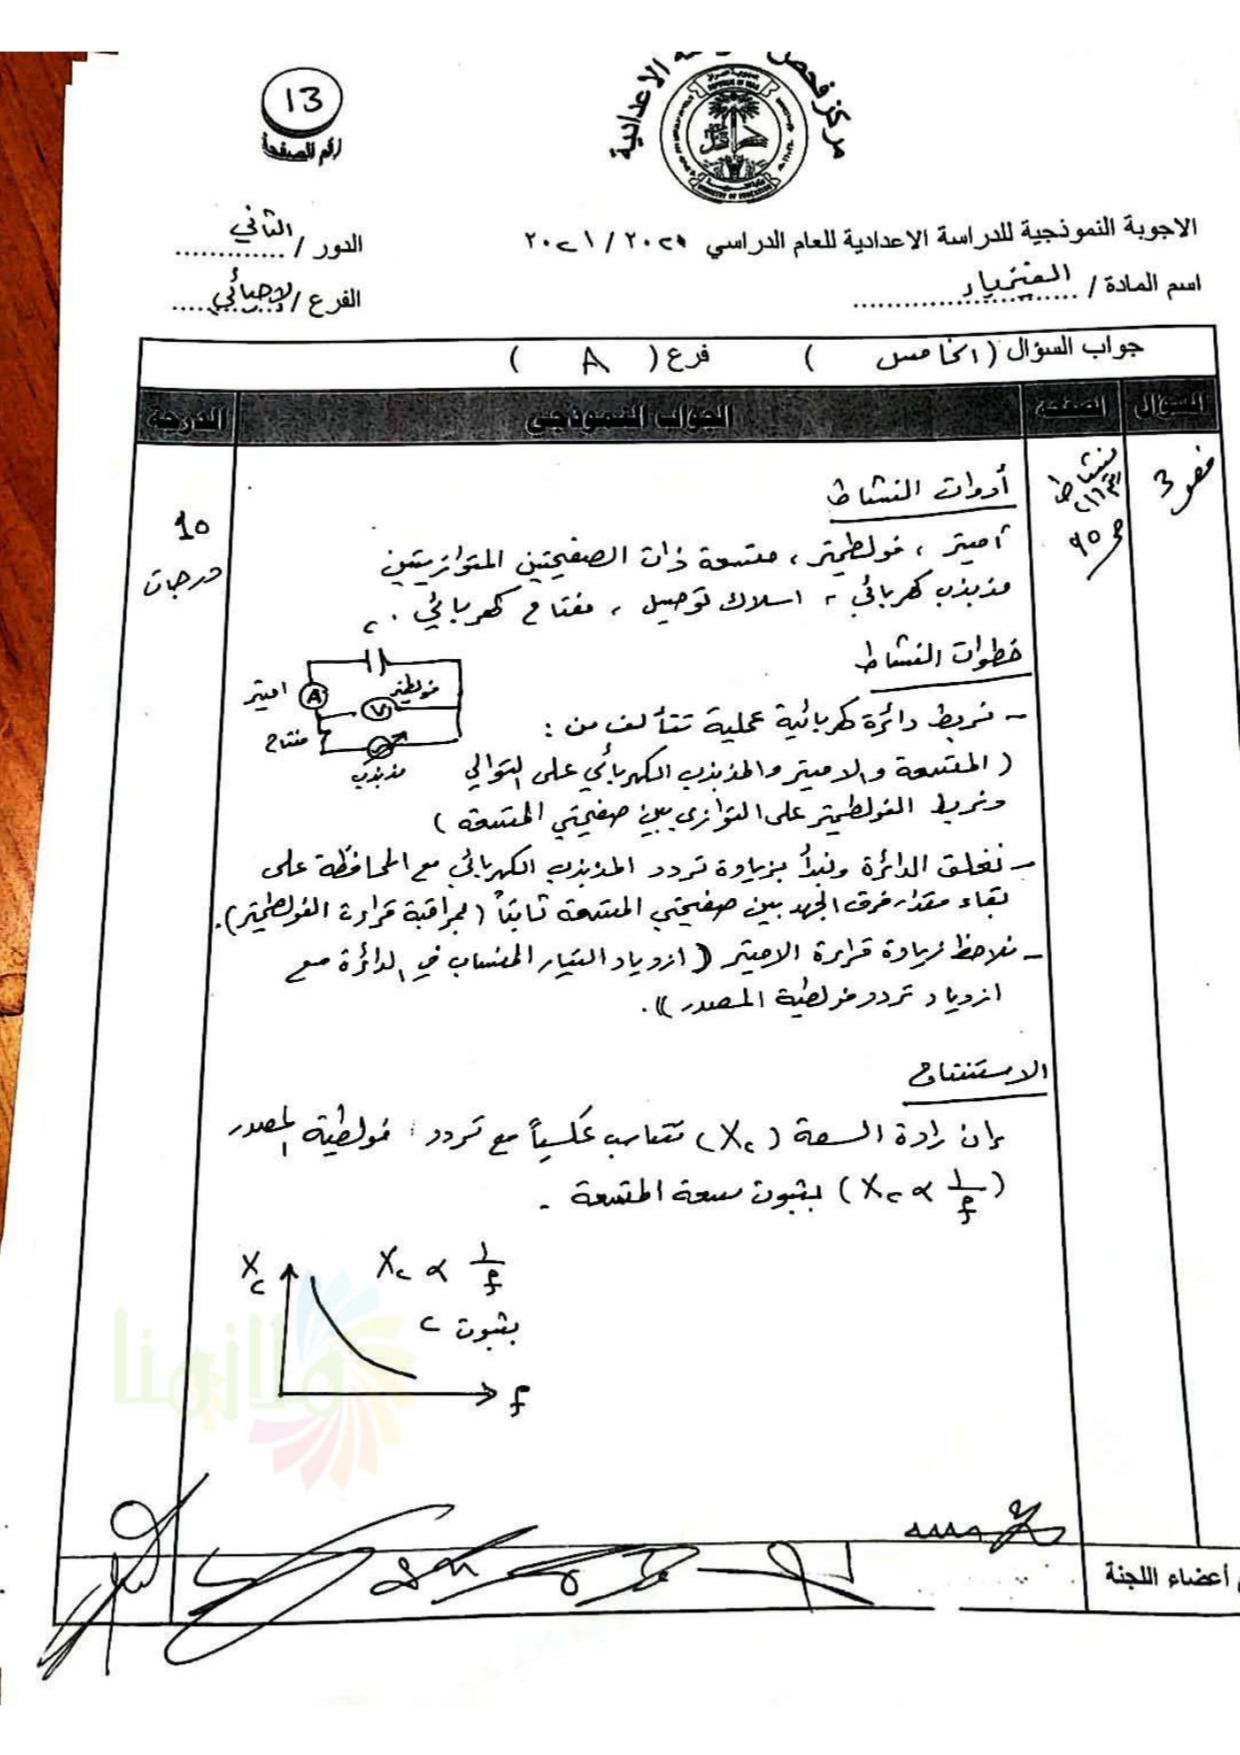 13
رقم الصفحة
مركز فحص الدراسة الاعدادية
الاجوبة النموذجية للدراسة الاعدادية للعام الدراسي ٢٠٢٠ / ٢٠٢١
الدور / الثاني
اسم المادة / الفيزياء
الفرع / الاحيائي
جواب السؤال ( الخامس ) فرع ( A )
السؤال الصفحة الجواب النموذجي الدرجة
فصل 3
نشاط
ص 90
10
درجات
أدوات النشاط
أميتر ، فولطميتر ، متسعة ذات الصفيحتين المتوازيتين
مذبذب كهربائي ، اسلاك توصيل ، مفتاح كهربائي .
خطوات النشاط
C
اميتر A
فولطميتر V
مفتاح
مذبذب
- نربط دائرة كهربائية عملية تتألف من :
( المتسعة والاميتر والمذبذب الكهربائي على التوالي
ونربط الفولطميتر على التوازي بين صفيحتي المتسعة )
- نغلق الدائرة ونبدأ بزيادة تردد المذبذب الكهربائي مع المحافظة على
بقاء مقدار فرق الجهد بين صفيحتي المتسعة ثابتاً ( لمراقبة قراءة الفولطميتر ).
- نلاحظ زيادة قراءة الاميتر ( ازدياد التيار المنساب في الدائرة مع
ازدياد تردد فولطية المصدر )).
الاستنتاج
إن رادة السعة (Xc) تتناسب عكسياً مع تردد فولطية المصدر
(Xc ∝ 1/f) بثبوت سعة المتسعة .
Xc
Xc ∝ 1/f
بثبوت C
f
ملازمنا
أعضاء اللجنة